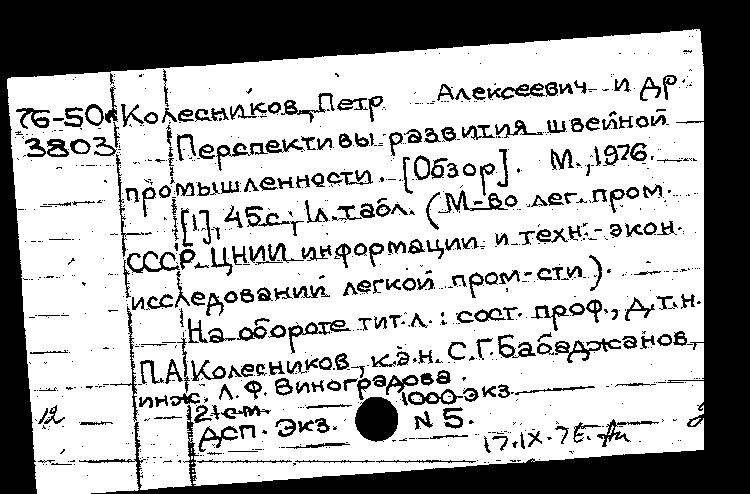 76-50 Колесников, Петр Алексеевич и др.
3803 Перспективы развития швейной
промышленности. [Обзор]. М., 1976.
[1], 45с.; 1л.табл. (М-во лег. пром.
СССР. ЦНИИ информации и техн.-экон.
исследований легкой пром-сти).
На обороте тит.л.: сост. проф., д.т.н.
П.А. Колесников, к.э.н. С.Г. Бабаджанов,
инж. Л.Ф. Виноградова.
21 см. 1000 экз.
12 ДСП. Экз. N 5.
17.IX.76.